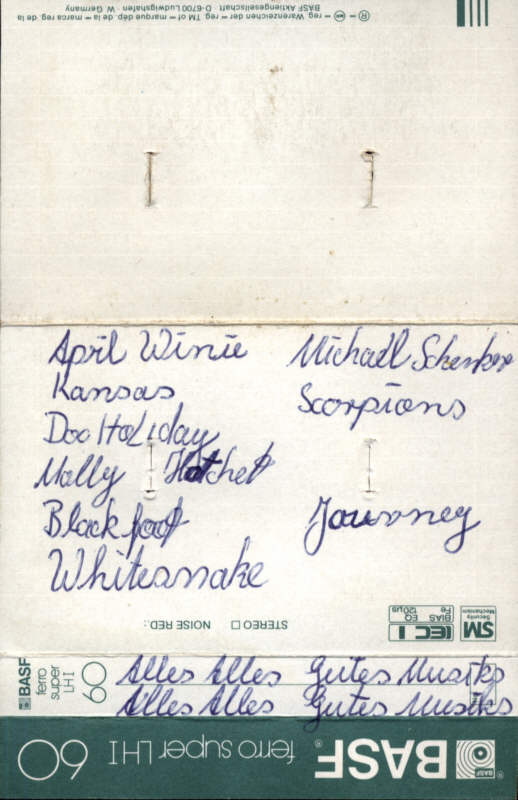 ® – ⊖ – reg. Warenzeichen der – reg. TM of – marque dép. de la – marca reg. de la
BASF Aktiengesellschaft · D-6700 Ludwigshafen · W. Germany
April Winie
Kansas
Doo Holiday
Molly Hatchet
Blackfoot
Whitesnake
Michaell Schenker
Scorpions
Journey
STEREO □ NOISE RED.:
SM
Security
Mechanism
IEC I
Fe
BIAS
EQ
120µs
BASF
ferro
super
LH I
60
Alles Alles Gutes Musiks
Alles Alles Gutes Musiks
BASF
BASF® ferro super LH I 60